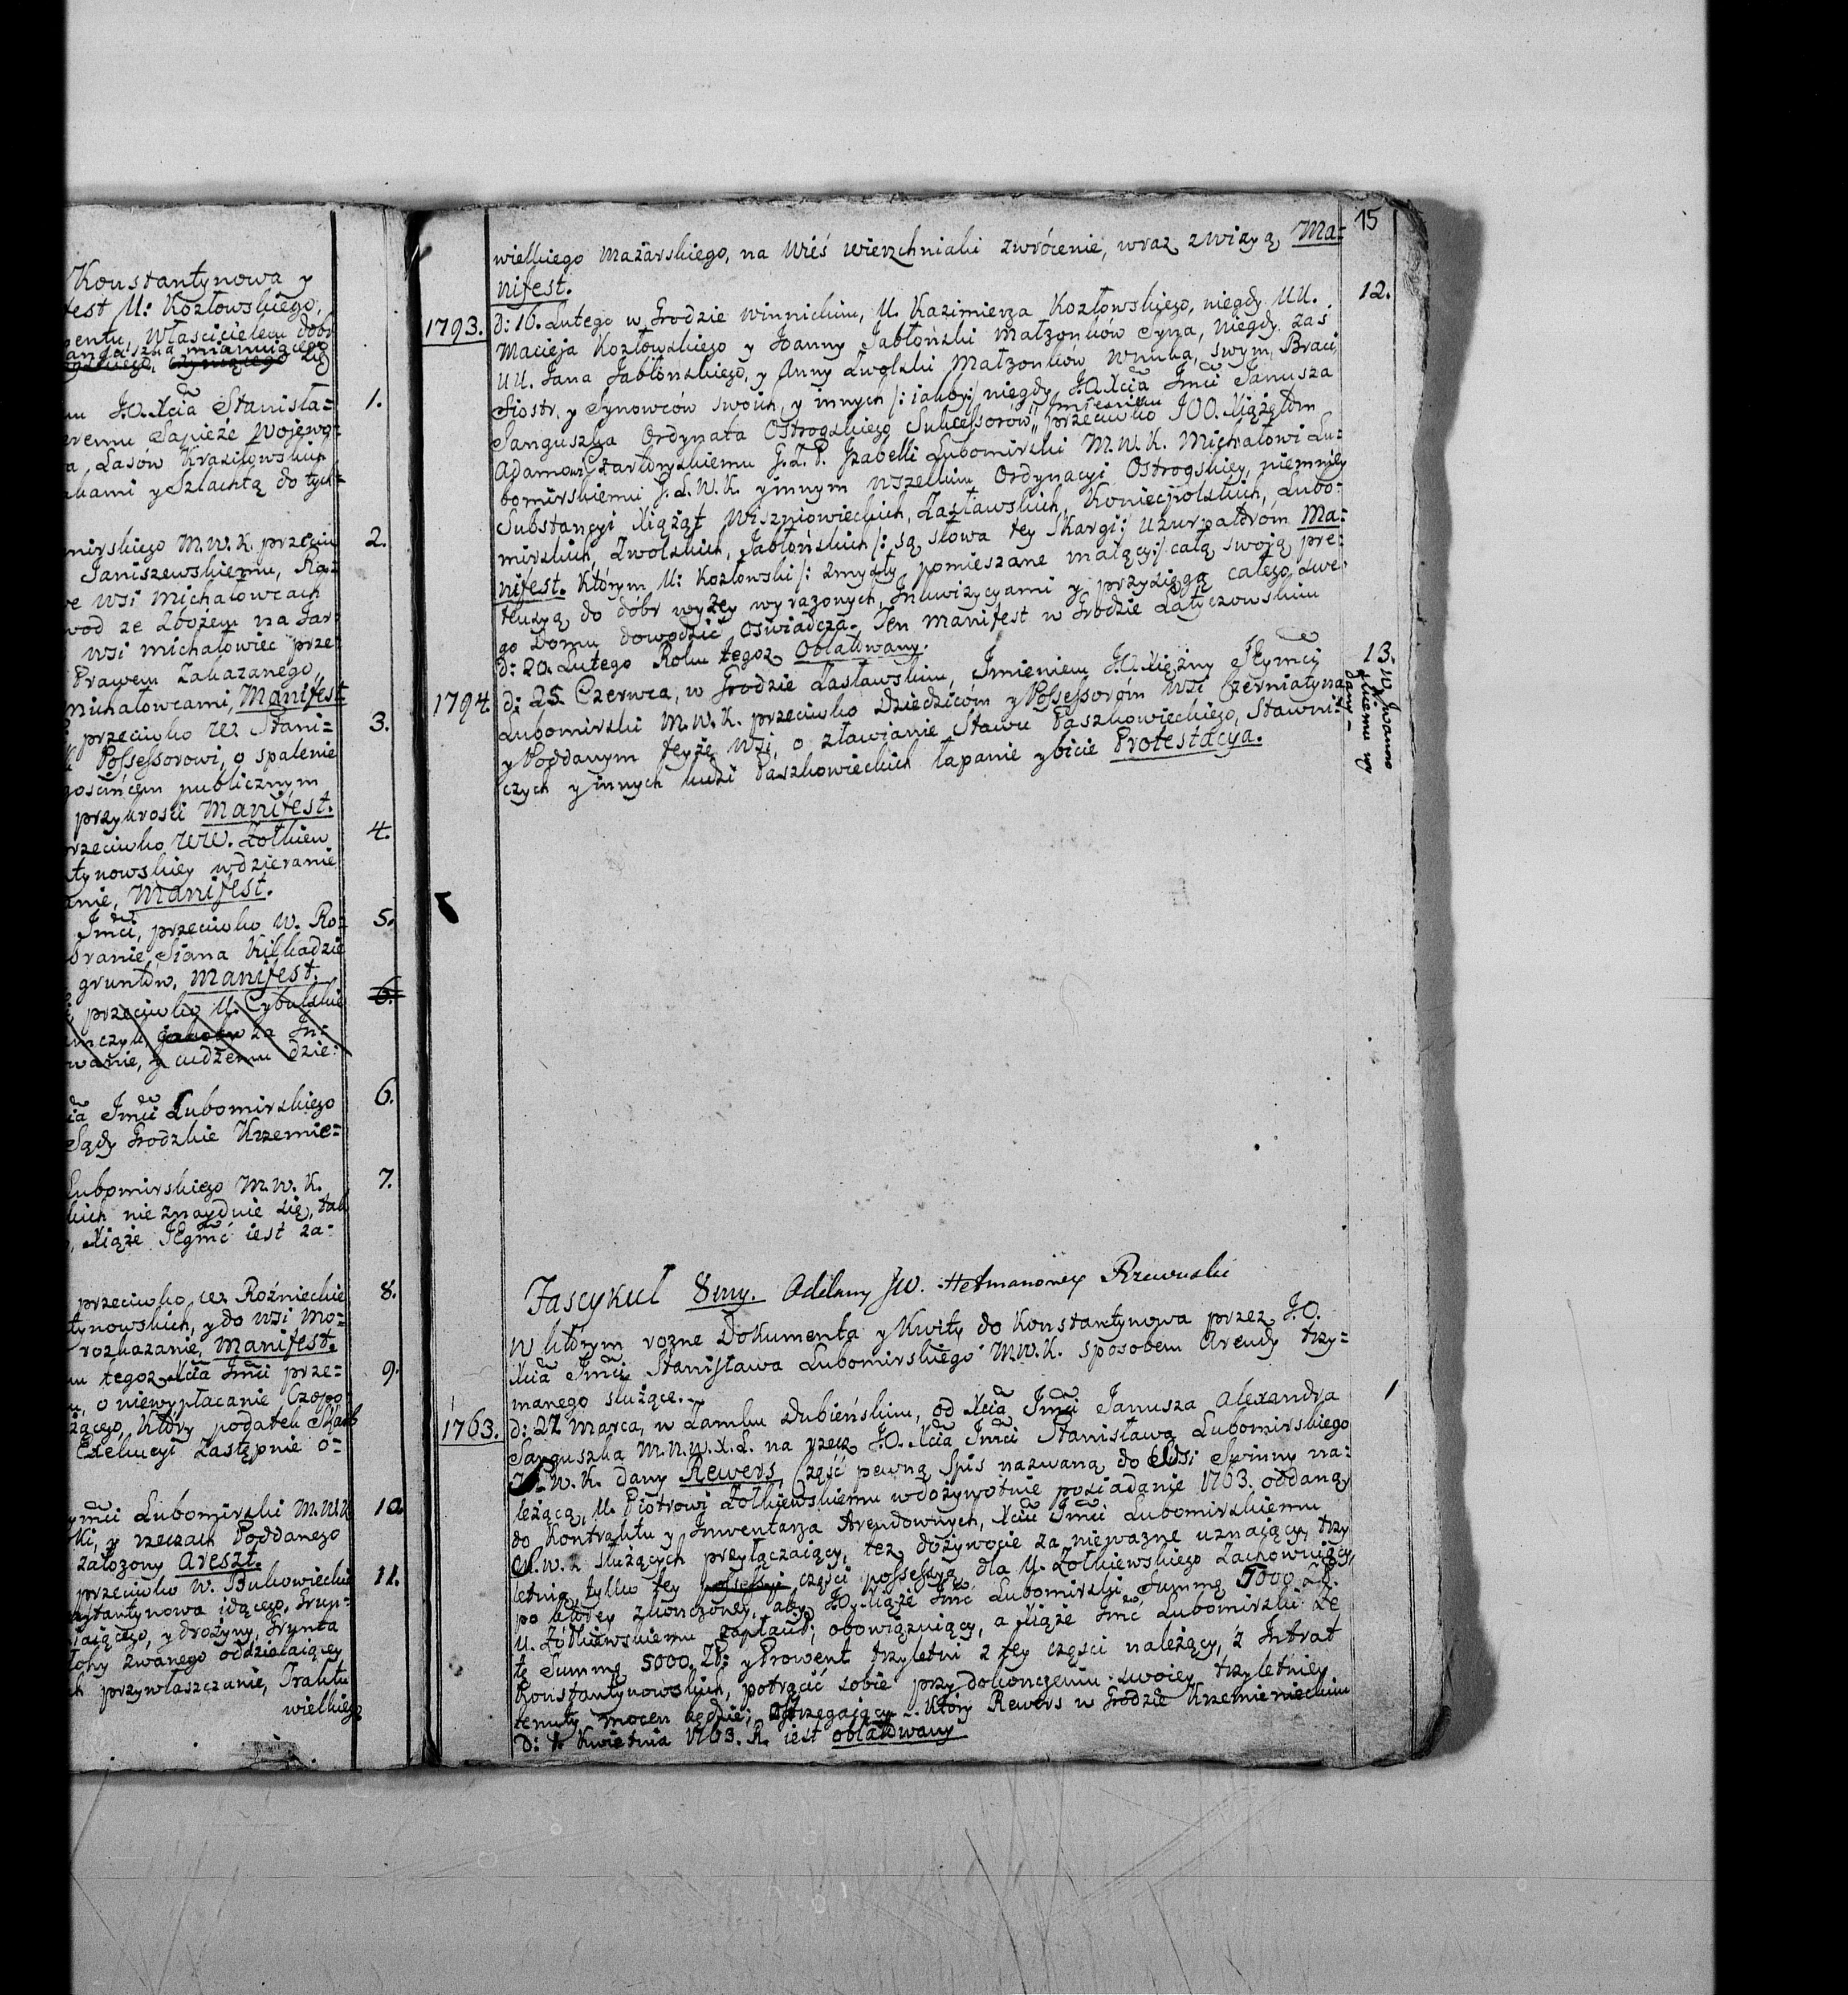 Konstantynowa y
fest U: Kozłowskiego,
Właścicielem dobr
mianującego
1.
mu J.O. Xcia Stanisła=
Sapieże Wojewo=
Lasów Krasiłowskich
y Szlachtą do tych=
mirskiego M.W.K. przeciw 2.
Janiszewskiemu, Ra=
we wsi Michałowcach
wod ze Zbożem na Jar=
wsi Michałowiec prze=
Prawem Zakazanego,
Michałowcami, Manifest
przeciwko W. Stani= 3.
Possessorowi, o spalenie
gościńcem publicznym
przykrości Manifest.
przeciwko WW. Żołkiew 4.
tynowskiey wdzieranie
Manifest.
Jmci, przeciwko W. Ro= 5.
branie Siana Kilkadzie
gruntów, Manifest.
przeciwko U. Cybulskie 6.
za In=
y cudzemu dzie=
Jmci Lubomirskiego 6.
Sądy Grodzkie Krzemie=
Lubomirskiego M.W.K. 7.
nie znayduie się, tak
Xiąże Jegmć iest za=
przeciwko W. Roźnieckie 8.
tynowskich, y do wsi Mo=
rozkazanie, Manifest.
tegoz Xcia Jmci prze= 9.
o niewypłacanie Czopo
Który podatek Skarb
Exekucyi Zastępnie o=
Lubomirski M.W.K. 10
y rzeczach Poddanego
założony Areszt.
przeciwko W. Bukowieckie 11.
stantynowa idącego, Grun=
y drożyny, Grunta
zwanego oddzielaiącey
przywłaszczanie, Traktu
wielkiego
15
wielkiego Mazarskiego, na Wieś Wierzchniaki zwrócenie, wraz z wizyą Ma=
nifest.
1793. d: 16. Lutego w Grodzie Winnickim, U. Kazimierza Kozłowskiego, niegdy UU. 12.
Macieja Kozłowskiego y Joanny Jabłoński Małzonków Syna, niegdy zaś
UU. Jana Jabłońskiego, y Anny Zwolski Małzonków Wnuka, swym, Braci,
Siostr, y Synowców swoich, y innych /: iakoby:/ niegdy J.O. Xcia Jmci Janusza
Sanguszka Ordynata Ostrogskiego Sukcessorów Imieniem przeciwko JOO. Xiążętom
Adamowi Czartoryskiemu G.Z.P. Izabelli Lubomirski M.W.K. Michałowi Lu=
bomirskiemu G.L.W.K. y innym wszelkim Ordynacyi Ostrogskiey, niemniey
Substancyi Xiążąt Wiszniowieckich, Zasławskich, Koniecpolskich, Lubo=
mirskich, Zwolskich, Jabłońskich /: są słowa tey Skargi:/ Uzurpatorom Ma=
nifest. Którym U: Kozłowski /: zmysły pomieszane maiący:/ całą swoją pre=
tensyą do dobr wyżey wyrażonych, Inkwizycyami y przysięgą całego swe=
go Domu dowodzić oświadcza. Ten Manifest w Grodzie Latyczowskim
d: 20. Lutego Roku tegoz Oblatowany.
1794 d: 25 Czerwca, w Grodzie Zasławskim, Imieniem J.O. Xiężny Jeymci 13.
Lubomirski M.W.K. przeciwko Dziedziców y Possessorom Wsi Czerniatyna
y Poddanym teyże Wsi, o zławianie Stawu Paszkowieckiego, Stawni=
czych y innych ludzi Paszkowieckich łapanie y bicie Protestacya.
W. Iwanow
skiemu wy
dany —
Fascykuł 8my. Oddany JW. Hetmanowey Rzewuski
W którym rożne Dokumenta y Kwity do Konstantynowa przez J.O.
Xcia Jmci Stanisława Lubomirskiego M.W.K. sposobem Arendy trzy=
manego służące.
1763. d: 22 Marca, w Zamku Dubieńskim, od Xcia Jmci Janusza Alexandra 1
Sanguszka M.N.W.X.L. na rzecz J.O. Xcia Jmci Stanisława Lubomirskiego
P.W.K. dany Rewers, Część pewną Spis nazwaną do Wsi Swinny na=
leżącą, U. Piotrowi Żołkiewskiemu w dożywotnie posiadanie 1763. oddaną,
do Kontraktu y Inwentarza Arendownych, Xciu Jmci Lubomirskiemu
P.W.K. służących przyłączaiący, też dożywocie za nieważne uznaiący, trzy
letnią tylko tey possessyi części possessyą dla U. Żołkiewskiego Zachowuiący,
po ktorey zkonczoney, aby J.O. Xiąże Jmć Lubomirski, Summę 5000 Zł.
U. Żołkiewskiemu zapłacił; obowiązuiący, a Xiąże Jmć Lubomirski że
tę Summę 5000. Zł: y Prowent trzyletni z tey części należący, z Intrat
Konstantynowskich, potrącić sobie przy dokonczeniu swoiey trzyletniey
tenuty mocen będzie; ostrzegaiący. Który Rewers w Grodzie Krzemienieckim
D: 1. Kwietnia 1763. R. iest oblatowany